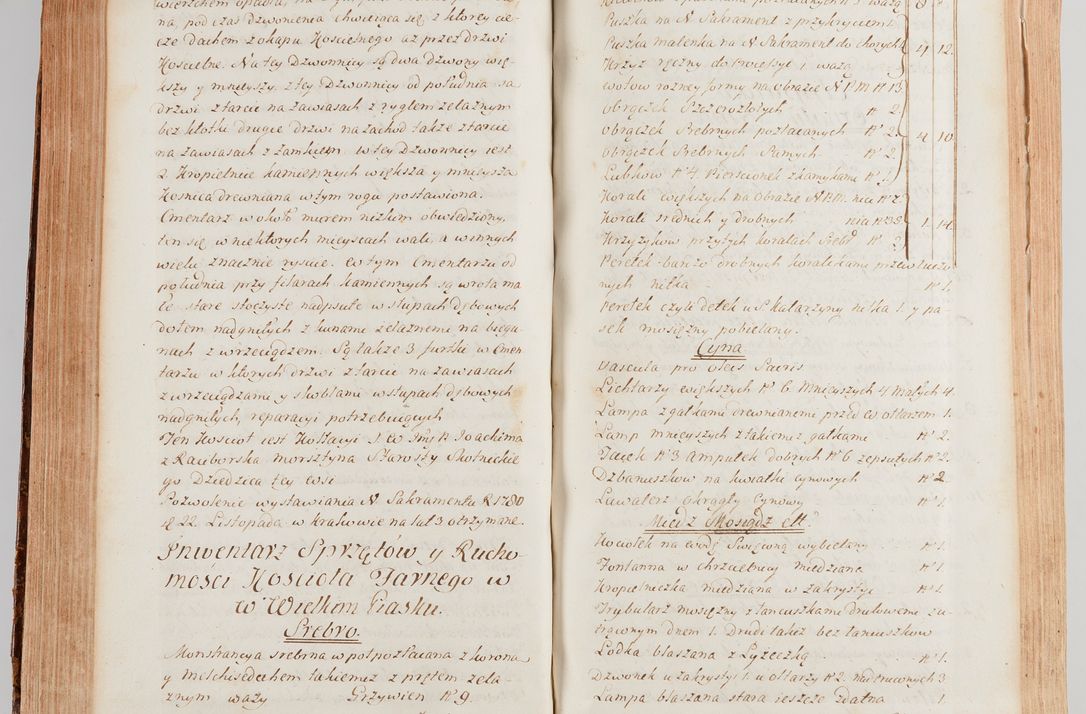 wierzchem opasła,
na, pod czas dzwonienia chwieiąca się, z ktorey cie-
cze dachem z okapu Koscielnego az przez drzwi
Koscielne. Na tey Dzwonnicy są dwa dzwony wię-
kszy y mnieyszy. z tey Dzwonnicy od południa są
drzwi ztarcic na zawiasach z ryglem zelaznym
bez kłotki drugie drzwi na zachod także ztarcic
na zawiasach z zamkiem. w tey Dzwonnicy iest
2. Kropielnice kamiennych większa y mnieysza
Kosnica drewniana w tym rogu postawiona.
Cmentarz w około murem nizkim obwiedziony,
ten się w niektorych mieyscach wali, a w innych
wielu znacznie rysuie. w tym Cmentarzu od
południa przy filarach kamiennych są wrota ma
łe stare stoczyste nadpsute w słupach dębowych
dołem nadgniłych z kunami zelaznemi na biegu-
nach z wrzeciądzem. Są także 3 furtki w Cmen-
tarzu w ktorych drzwi ztarcic na zawiasach
z wrzeciądzami y skoblami w słupach dębowych
nadgniłych, reparacyi potrzebuiących
Ten Koscioł iest Kollacyi J. W Jmć P. Joachima
z Raciborska morsztyna Starosty Skotnickie
go Dziedzica tey wsi
Pozwolenie wystawiania N Sakramentu R 1780
d 22. Listopada w krakowie na lat 3 otrzymane.
Inwentarz Sprzętów y Rucho-
mości Kościoła Farnego w
w Wielkim Piasku.
Srebro.
Monstrancya srebrna w połpozłacana z korona
y melchisedechem takiemez z prętem zela
znym wazy Grzywien N° 9.
Puszka na N Sakrament z przykryciem
Puszka malenka na N Sakrament do chorych 4 12.
Krzyz ręczny do Procęssyi 1. wazą
wotow rozney formy na obrazie N P M N° 13
obrączek Szczerozłotych N° 2.
obrączek Srebrnych pozłacanych N° 2. 4 10.
obrączek Srebrnych Samych N° 2.
Lubkow N° 4. Pierscionek z kamykami N° 1.
Korali większych na obrazie N P.M. nici N° 2
Korali srednich y drobnych nici N° 1. 14.
Krzyzykow przytych koralach Srebr. N° 2
Perełek bardzo drobnych koralikami przewłoczo
nych nitka N° 1.
Perełek czyli dętek u S. Katarzyny nitka 1. y pa
sek mosięzny pobielany.
Cyna
Vascula pro oleis Sacris
Lichtarzy większych N° 6. Mnieyszych 4 Małych 4.
Lampa z gałkami drewnianemi przed w ołtarzem 1.
Lamp mnieyszych z takiemiz gałkami N° 2.
Tacek N° 3 ampułek dobrych N° 6 zepsutych N° 2.
Dzbanuszkow na kwiatki cynowych N° 2.
Lawaterz Okrągły Cynowy N° 1.
Miedz Mosiądz ett.
Kociołek na wodę Swięconą wybielany N° 1.
Fontanna w chrzcielnicy miedziana N° 1.
Kropielniczka miedziana w zakrystyi N° 1.
Trybularz mosięzny z łancuszkami drutowemi zu
trąconym dnem 1. Drugi także bez łancuszkow
Łodka blaszana z Łyzeczką N° 1.
Dzwonek u zakrystyi 1. u ołtarzy N° 2. nadtłuconych 3
Lampa blaszana stara ieszcze zdatna 1.